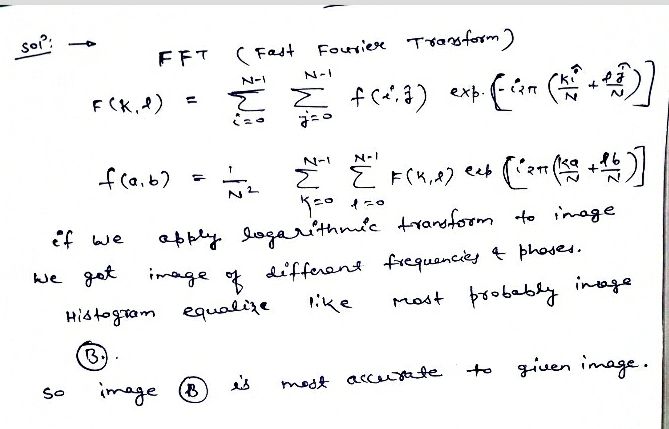 Solⁿ: → FFT (Fast Fourier Transform)
F(k,l) = \sum_{i=0}^{N-1} \sum_{j=0}^{N-1} f(i,j) exp. [-i2π (ki/N + lj/N)]
f(a,b) = 1/N² \sum_{k=0}^{N-1} \sum_{l=0}^{N-1} F(k,l) exp [i2π (ka/N + lb/N)]
if we apply logarithmic transform to image
we get image of different frequencies & phases.
Histogram equalize like most probably image
(B).
so image (B) is most accurate to given image.